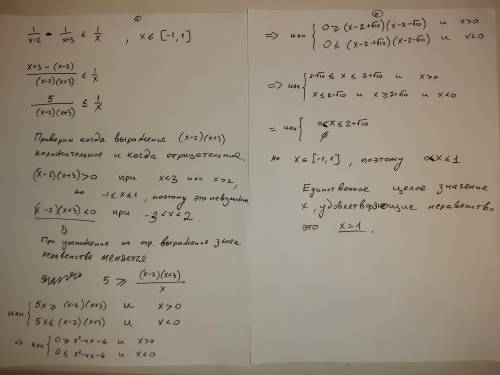 ①
1/(x-2) - 1/(x+3) ≤ 1/x , x ∈ [-1,1]
(x+3-(x-2))/((x-2)(x+3)) ≤ 1/x
5/((x-2)(x+3)) ≤ 1/x
Проверим когда выражение (x-2)(x+3)
положительное и когда отрицательное.
(x-2)(x+3)>0 при x<-3 или x>2,
но -1≤x≤1, поэтому это невозможно
(x-2)(x+3)<0 при -3<x<2.
⇓
При умножение на отр. выражение знак
неравенства меняется
5 ≥ (x-2)(x+3)/x
или { 5x ≥ (x-2)(x+3) и x>0
5x ≤ (x-2)(x+3) и x<0
⇒ или { 0 ≥ x²-4x-6 и x>0
0 ≤ x²-4x-6 и x<0
②
⇒ или { 0 ≥ (x-2+√10)(x-2-√10) и x>0
0 ≤ (x-2+√10)(x-2-√10) и x<0
⇒ или { 2-√10 ≤ x ≤ 2+√10 и x>0
x ≤ 2-√10 и x ≥ 2+√10 и x<0
= или { 0<x≤2+√10
∅
но x∈[-1,1], поэтому 0<x≤1
Единственное целое значение
x, удовлетворяющие неравенство
это x=1.